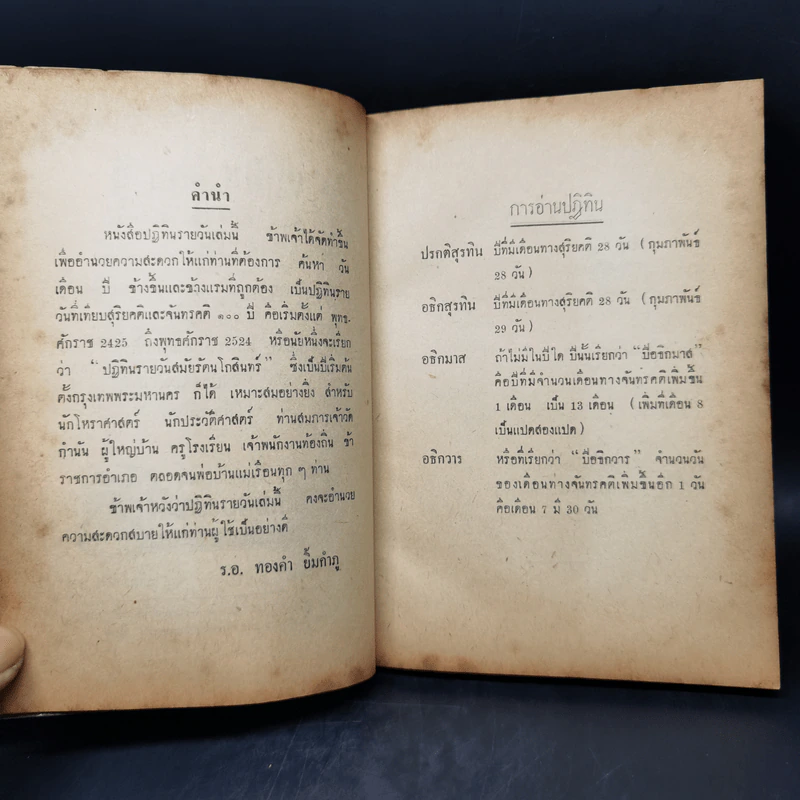 คำนำ
หนังสือปฏิทินรายวันเล่มนี้ ข้าพเจ้าได้จัดทำขึ้น
เพื่ออำนวยความสะดวกให้แก่ท่านที่ต้องการ ค้นหา วัน
เดือน ปี ข้างขึ้นและข้างแรมที่ถูกต้อง เป็นปฏิทินราย
วันที่เทียบสุริยคติและจันทรคติ ๑๐๐ ปี คือเริ่มตั้งแต่ พุทธ-
ศักราช 2425 ถึงพุทธศักราช 2524 หรือนัยหนึ่งจะเรียก
ว่า “ปฏิทินรายวันสมัยรัตนโกสินทร์” ซึ่งเป็นปีเริ่มต้น
ตั้งกรุงเทพพระมหานคร ก็ได้ เหมาะสมอย่างยิ่ง สำหรับ
นักโหราศาสตร์ นักประวัติศาสตร์ ท่านสมภารเจ้าวัด
กำนัน ผู้ใหญ่บ้าน ครูโรงเรียน เจ้าพนักงานท้องถิ่น ข้า
ราชการอำเภอ ตลอดจนพ่อบ้านแม่เรือนทุก ๆ ท่าน
ข้าพเจ้าหวังว่าปฏิทินรายวันเล่มนี้ คงจะอำนวย
ความสะดวกสบายให้แก่ท่านผู้ใช้เป็นอย่างดี
ร.อ. ทองคำ ยิ้มกำภู
การอ่านปฏิทิน
ปรกติสุรทิน ปีที่มีเดือนทางสุริยคติ 28 วัน (กุมภาพันธ์
28 วัน)
อธิกสุรทิน ปีที่มีเดือนทางสุริยคติ 28 วัน (กุมภาพันธ์
29 วัน)
อธิกมาส ถ้าไม่มีในปีใด ปีนั้นเรียกว่า “ปีอธิกมาส”
คือปีที่มีจำนวนเดือนทางจันทรคติเพิ่มขึ้น
1 เดือน เป็น 13 เดือน (เพิ่มที่เดือน 8
เป็นแปดสองแปด)
อธิกวาร หรือที่เรียกว่า “ปีอธิกวาร” จำนวนวัน
ของเดือนทางจันทรคติเพิ่มขึ้นอีก 1 วัน
คือเดือน 7 มี 30 วัน